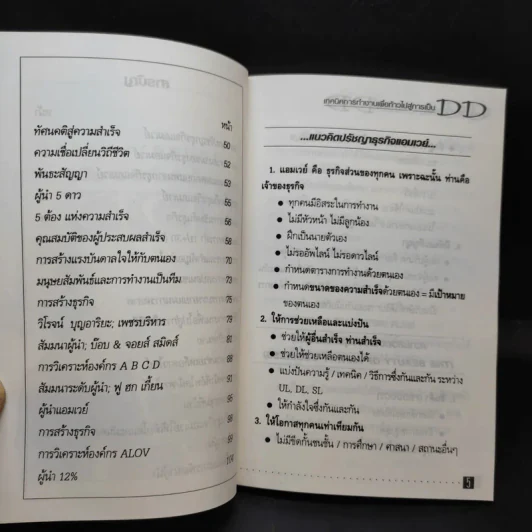 หน้า
ทัศนคติสู่ความสำเร็จ 50
ความเชื่อเปลี่ยนวิถีชีวิต 52
พันธะสัญญา 52
ผู้นำ 5 ดาว 55
5 ต้อง แห่งความสำเร็จ 56
คุณสมบัติของผู้ประสบผลสำเร็จ 58
การสร้างแรงบันดาลใจให้กับตนเอง 70
มนุษยสัมพันธ์และการทำงานเป็นทีม 73
การสร้างธุรกิจ 75
วิโรจน์ บุญอาริยะ; เพชรบริหาร 79
สัมมนาผู้นำ; บ๊อบ & จอยส์ สมิตส์ 81
การวิเคราะห์องค์กร A B C D 86
สัมมนาระดับผู้นำ; ฟู ฮก เกี้ยน 91
ผู้นำแอมเวย์ 95
การสร้างธุรกิจ 98
การวิเคราะห์องค์กร ALOV 99
ผู้นำ 12%
เทคนิคการทำงานเพื่อก้าวไปสู่การเป็น DD
...แนวคิดปรัชญาธุรกิจแอมเวย์...
1. แอมเวย์ คือ ธุรกิจส่วนของทุกคน เพราะฉะนั้น ท่านคือ
เจ้าของธุรกิจ
● ทุกคนมีอิสระในการทำงาน
● ไม่มีหัวหน้า ไม่มีลูกน้อง
● ฝึกเป็นนายตัวเอง
● ไม่รออัพไลน์ ไม่รอดาวไลน์
● กำหนดตารางการทำงานด้วยตนเอง
● กำหนดขนาดของความสำเร็จด้วยตนเอง = มีเป้าหมาย
ของตนเอง
2. ให้การช่วยเหลือและแบ่งปัน
● ช่วยให้ผู้อื่นสำเร็จ ท่านสำเร็จ
● ช่วยให้ช่วยเหลือตนเองได้
● แบ่งปันความรู้ / เทคนิค / วิธีการซึ่งกันและกัน ระหว่าง
UL, DL, SL
● ให้กำลังใจซึ่งกันและกัน
3. ให้โอกาสทุกคนเท่าเทียมกัน
● ไม่มีขีดกั้นชนชั้น / การศึกษา / ศาสนา / สถานะอื่นๆ
5